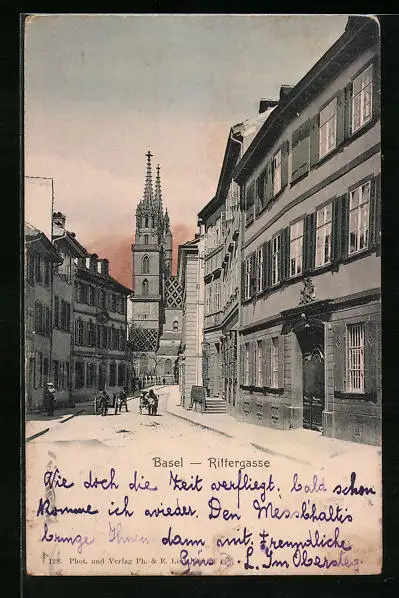 Basel — Rittergasse
Wie doch die Zeit verfliegt, bald schon
komme ich wieder. Den
bringe Ihnen dann mit. Freundliche
Grüsse L. Im Obersteg
128. Phot. und Verlag Ph. & E.